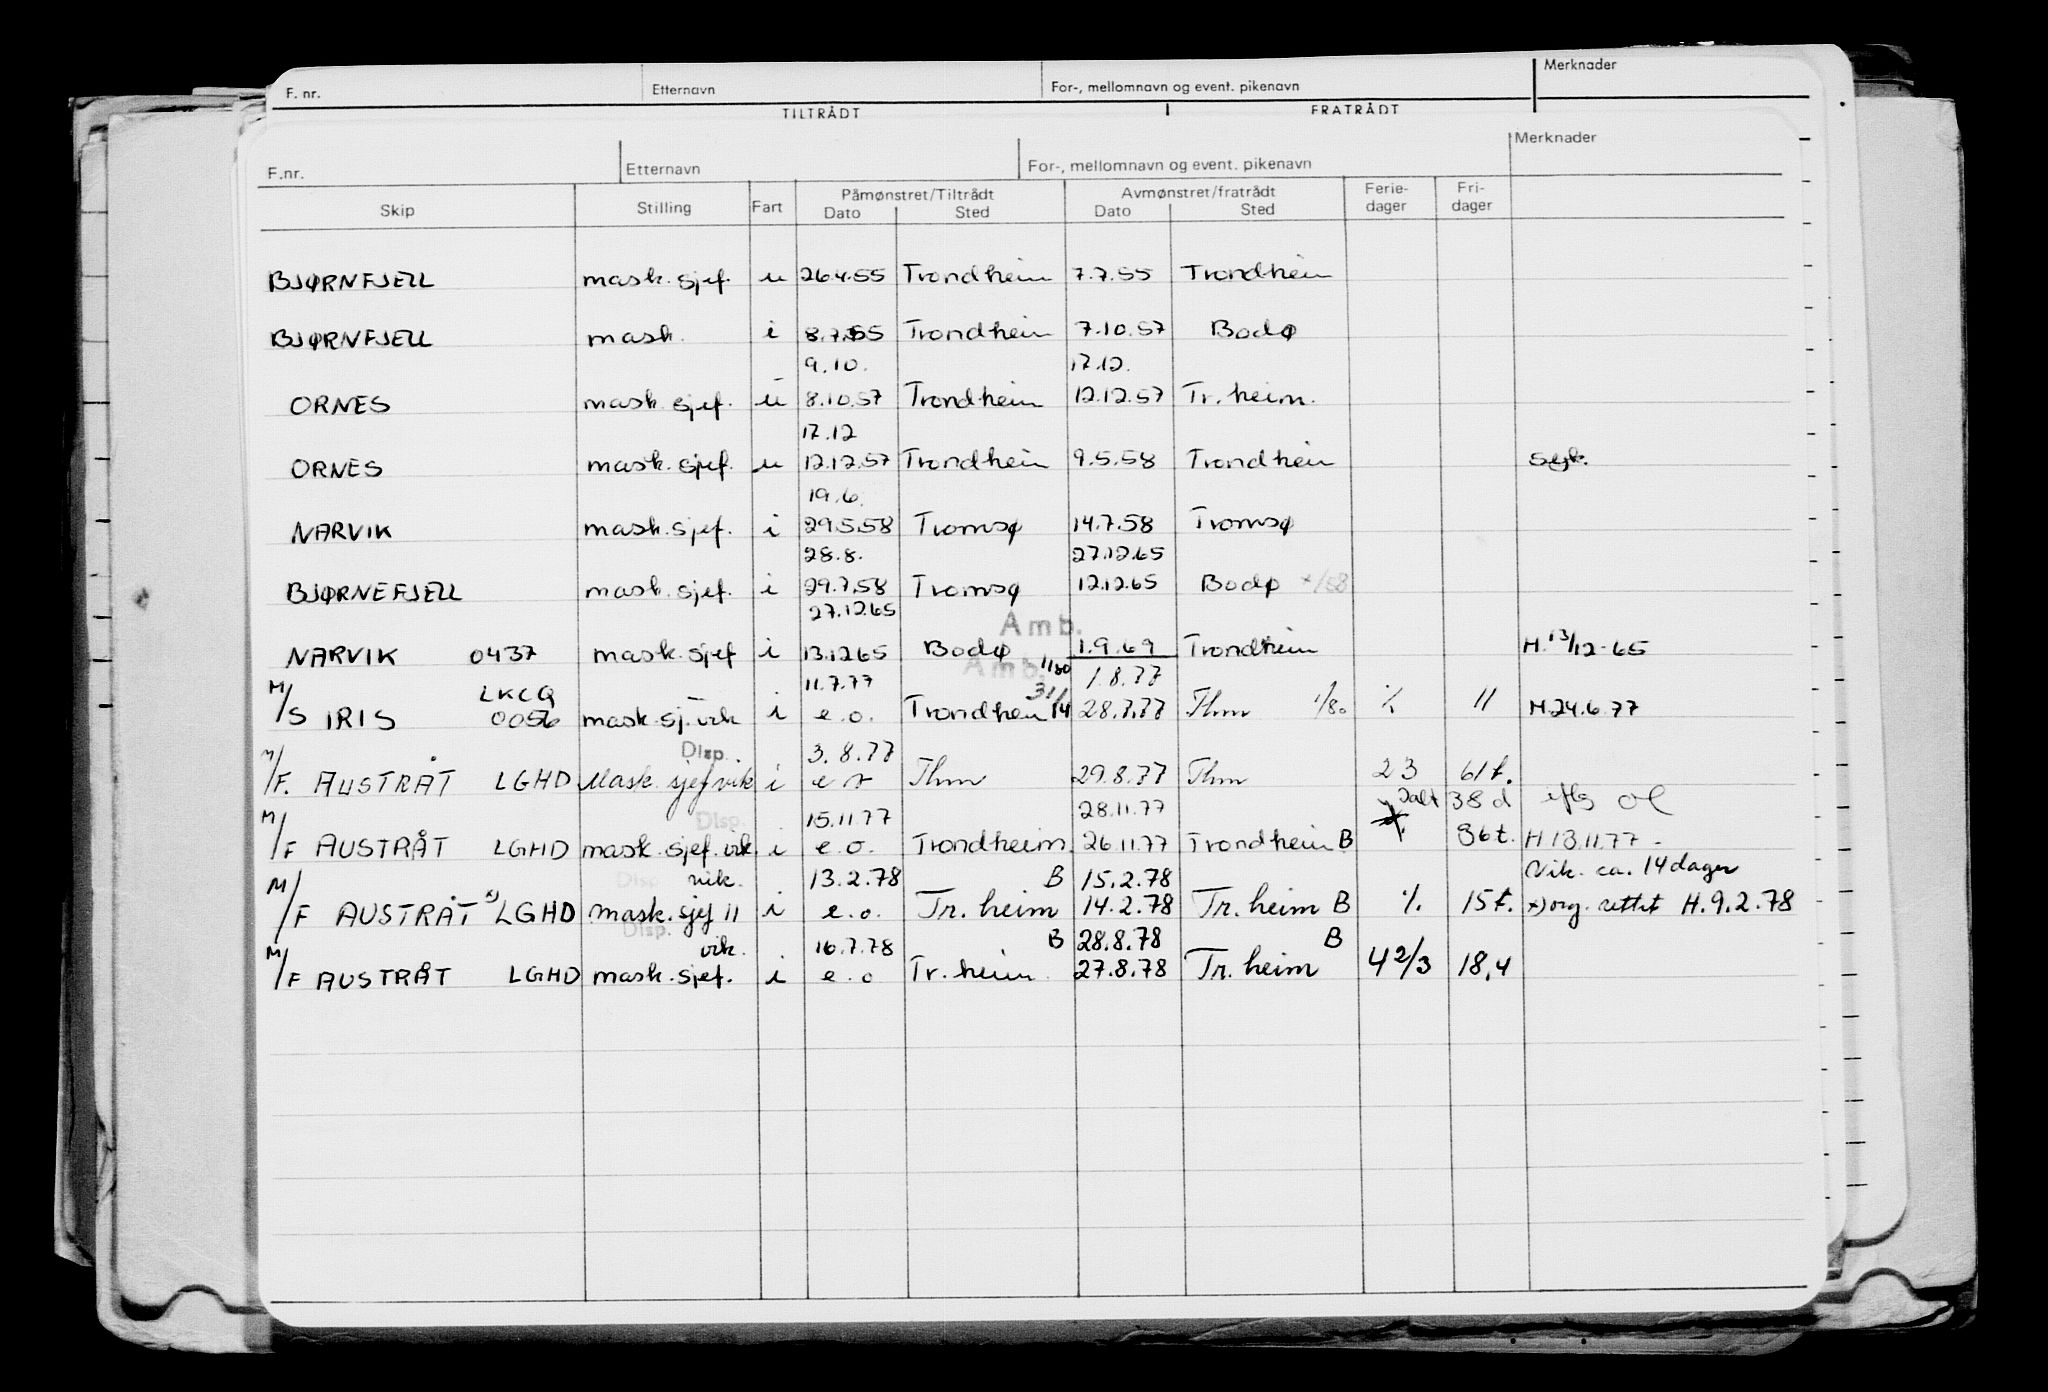 F. nr. Etternavn For-, mellomnavn og event. pikenavn Merknader
TILTRÅDT FRATRÅDT
F.nr. Etternavn For-, mellomnavn og event. pikenavn Merknader
Skip Stilling Fart Påmønstret/Tiltrådt Avmønstret/fratrådt Ferie- Fri-
Dato Sted Dato Sted dager dager
BJØRNFJELL mask.sjef. u 26.4.55 Trondheim 7.7.55 Trondheim
BJØRNFJELL mask. i 8.7.55 Trondheim 7.10.57 Bodø
9.10. 17.12.
ORNES mask.sjef. u 8.10.57 Trondheim 12.12.57 Tr.heim.
17.12
ORNES mask.sjef. u 12.12.57 Trondheim 9.5.58 Trondheim syk.
19.6.
NARVIK mask.sjef. i 29.5.58 Tromsø 14.7.58 Tromsø
28.8. 27.12.65
BJØRNEFJELL mask.sjef. i 29.7.58 Tromsø 12.12.65 Bodø
27.12.65
Amb.
NARVIK 0437 mask.sjef i 13.12.65 Bodø 1.9.69 Trondheim H.13/12-65
Amb. 1/80
LKCQ 11.7.77 1.8.77
M/S IRIS 0056 mask.sj.vik i e.o. Trondheim 28.7.77 Thm 1/80 % 11 H.24.6.77
Disp. 3.8.77
M/F. AUSTRÅT LGHD Mask.sjef vik i e o Thm 29.8.77 Thm 23 61 t.
Disp. 15.11.77 28.11.77 Ialt 38 d
M/F AUSTRÅT LGHD mask.sjef.vik. i e.o. Trondheim 26.11.77 Trondheim B 36t. H 13.11.77.
Disp vik. 13.2.78 B 15.2.78 Vik. ca. 14 dager
M/F AUSTRÅT x) LGHD mask.sjef 11 i e.o. Tr.heim 14.2.78 Tr.heim B % 15t. x) org. rettet H.9.2.78
Disp. vik. 16.7.78 B 28.8.78 B
M/F AUSTRÅT LGHD mask.sjef. i e.o Tr.heim 27.8.78 Tr.heim 4 2/3 18,4